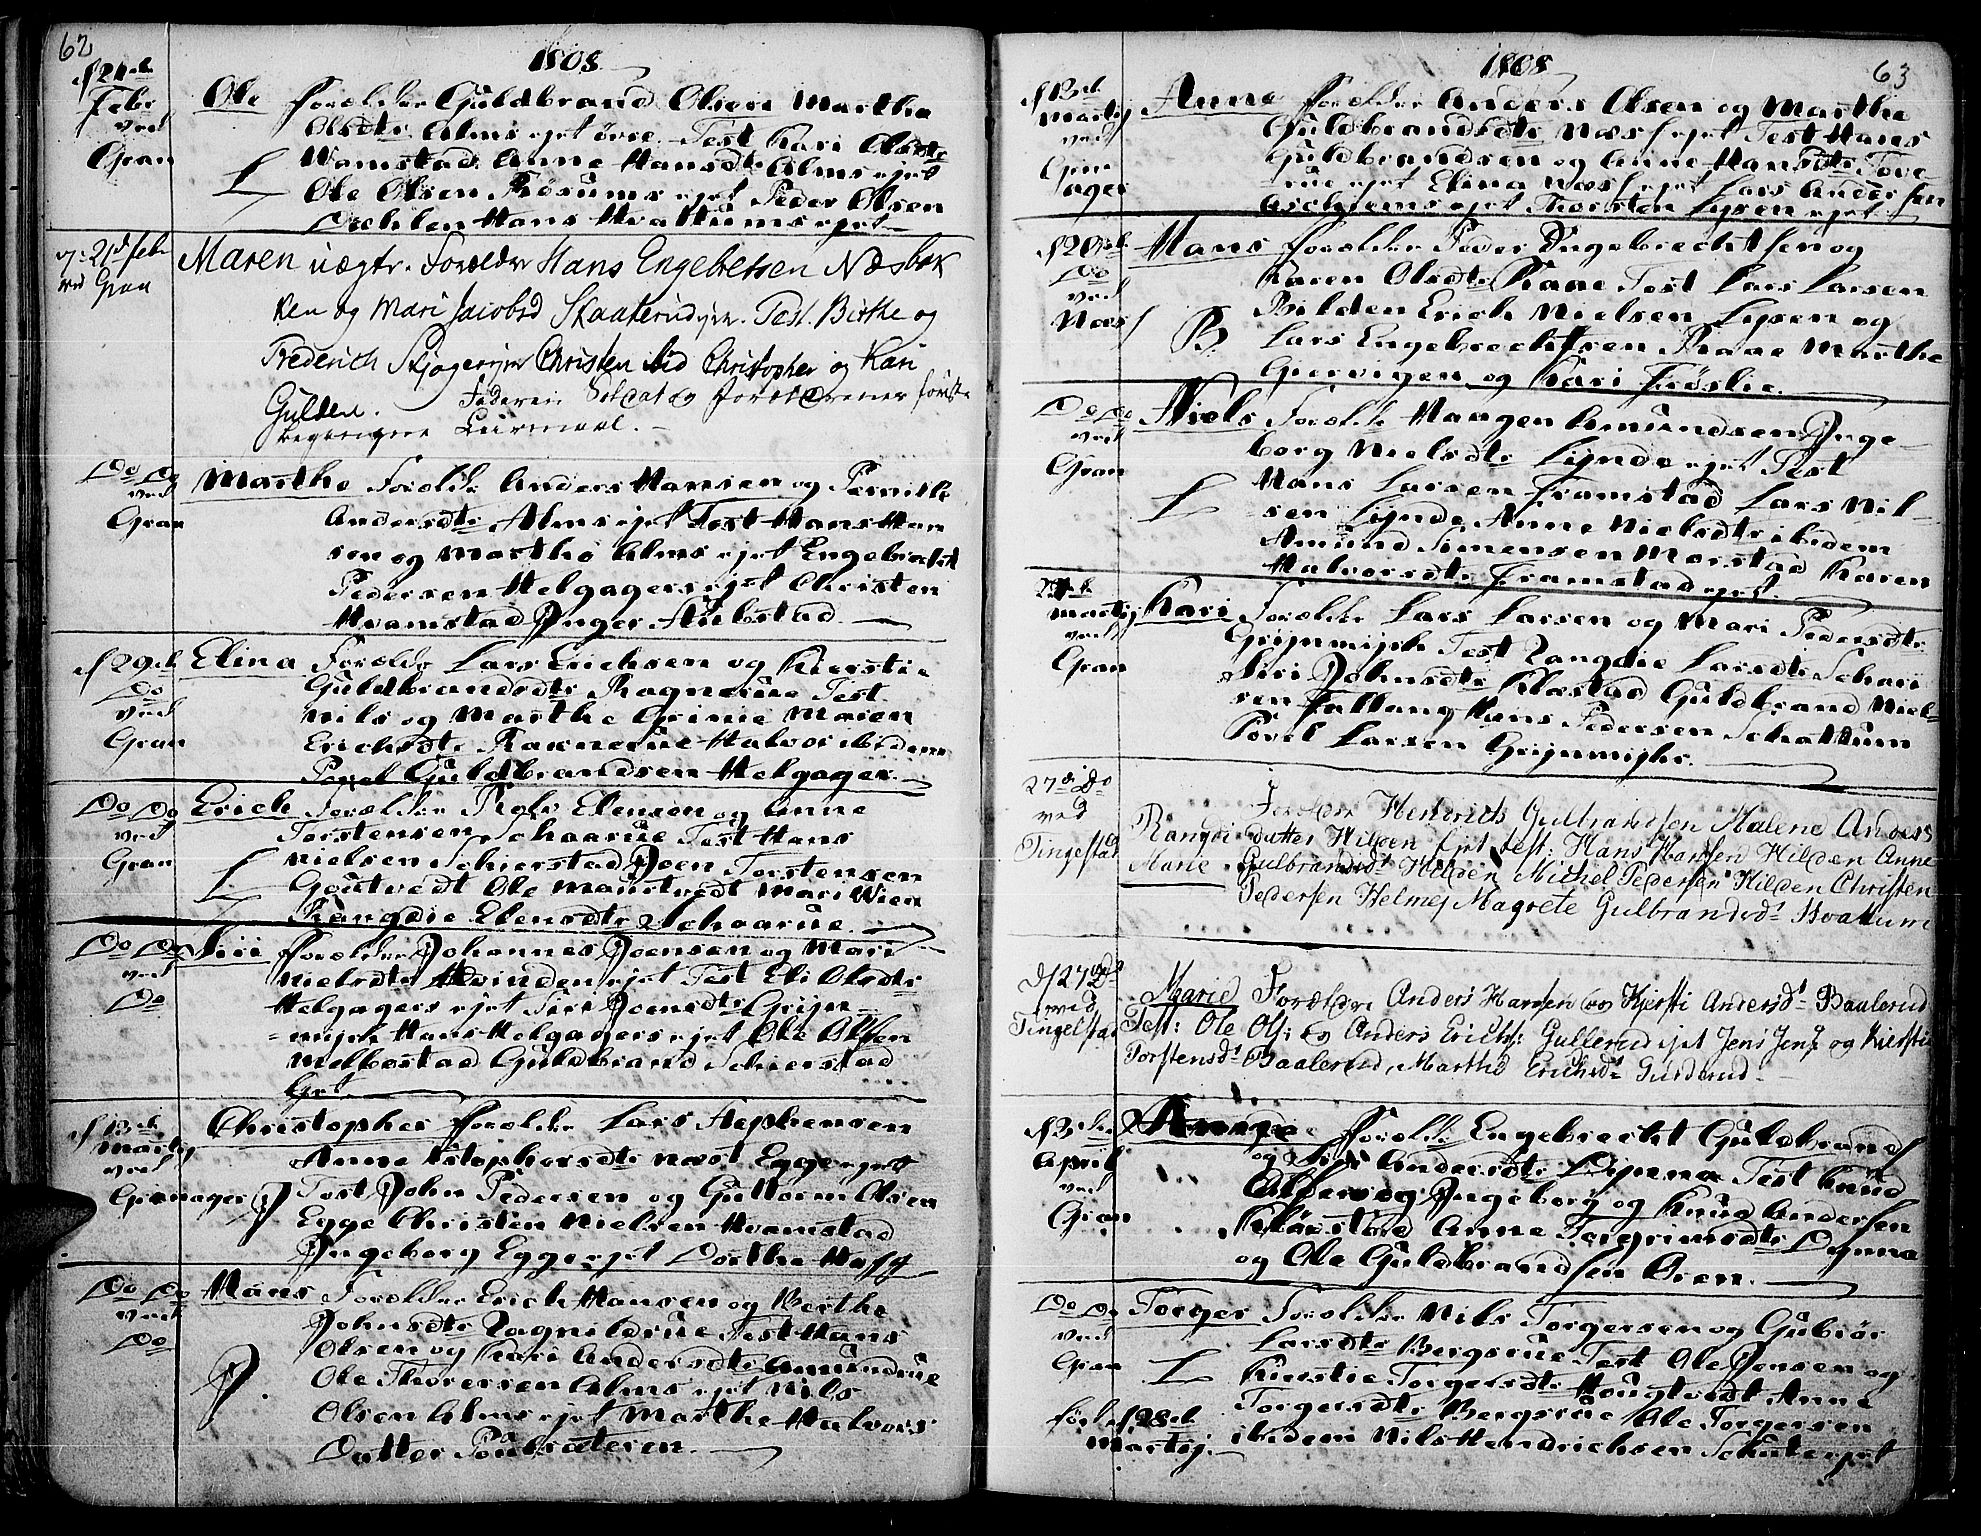 62
1808
d 21de Febr ved Gran
Ole Forældre Guldbrand Olsen Marthe
Olsdtr Alms ejet øvre Test Kari Olsdtr
Hvamstad Anne Hansdtr Alms ejet
L Ole Olsen Røsums ejet Peder Olsen
Dæhlen Hans Hvattums ejet
21d Feb ved Gran
Maren uægte. Forældre Hans Engebretsen Næsbak
ken og Mari Jacobsd Skaaterudejer. Test. Birthe og
Frederich Christen Lid Christopher og Kari
Gulden. Faderen Soldat og Forældrenes første
begangne Leiermaal.
Do Do ved Gran
Marthe Forældre Anders Hansen og Pernille
Andersdtr Alms ejet Test Hans Han
sen og Marthe Alms ejet Engebrecht
Pedersen Helgagers ejet Christen
Hvamstad Inger Stubstad
d 29de Do ved Gran
Elina Forældre Lars Erichsen og Kierstie
Guldbrandsdtr Ragnerue Test
Nils og Marthe Grinie Maren
Erichsdtr Raknerue Halvor ibidem
Povel Guldbrandsen Helgager.
Do Do ved Gran
Erich Forældre Rolv Elensen og Anne
Torstensen Schaarue Test Hans
Nielsen Schierstad Joen Torstensen
L Goutvedt Ole Maustvedt Mari Wien
Rangdie Elensdtr Schaarue
Do Do ved Do
Siri Forældre Johannes Joensen og Mari
Nielsdtr Hvinden ejet Test Eli Olsdtr
Helgagers ejet Siri Joensdtr Grijn
mijhr Hans Helgagers ejet Ole Olsen
Melbostad Guldbrand Schierstad
Ejet
d 13de Martij ved Granager
Christopher Forældre Lars Stephensen
Anne Cstophersdtr næst Egge ejet
Test John Pedersen og Guttorm Olsen
Egge Christen Nielsen Hvamstad
Ingeborg Egge ejet Dorthe Hass
Do Do ved Do
Hans Forældre Erich Hansen og Berthe
Johnsdtr Ragnildrue Test Hans
Olsen og Kari Andersdtr Amundrue
Ole Thorersen Alms ejet Nils
Olsen Alms ejet Marthe Halvors
Datter Poulsæteren.
63
1808
d 13de Martij ved Gran ager
Anne Forældre Anders Olsen og Marthe
Guldbrandsdtr Næs ejet Test Hans
Guldbrandsen og Anne Hansdtr Tove
rue ejet Elina Næs ejet Lars Andersen
Aschiems ejet Thorsten Lysen ejet
d 20de Do ved Næs
Hans Forældre Peder Ingebrechtsen og
Karen Olsdtr Raae Test Lars Larsen
Bilden Erich Nielsen Lysen og
Lars Engebrechtsen Raae Marthe
Giervigen og Kari Frøslie.
Do Do ved Gran
Niels Forældre Haagen Amundsen Inge
borg Nielsdtr Lynde ejet Test
Hans Larsen Framstad Lars Nil
L sen Lynde Anne Nielsdtr ibidem
Amund Simensen Morstad Karen
Halvorsdtr Framstad ejet.
Martij ved Gran
Kari Forældre Lars Larsen og Mari Pedersdtr
Grijnmijhr Test Rangdie Larsdtr Schari
Siri Johnsdtr Klæstad Guldbrand Niel
sen Fallang Hans Pedersen Schattum
Povel Larsen Grijnmijhr.
27de Do ved Tingelstad
Forældre Henderich Gulbrandsen Malene Anders
Rangdi datter Hilden Ejet test: Hans Hansen Hilden Anne
Marie Gulbrandsd Hilden Michel Pedersen Hilden Christen
Pedersen Helmej Magrete Gulbrandsd Hvattum
d 27de Do ved Tingelstad
Marie Forældre Anders Hansen og Kjersti Andersd Baalerud
Test: Ole Ols: og Anders Erichs: Gullerud ejet Jens Jens og Kiersti
Torstensd Baalerud, Marthe Erichsd Gurderud
April ved Gran
Anne Forældre Engebrecht Guldbrands
og Siri Andersdtr Dijnna Test Knud
Alfsen og Ingeborg og Knud Andersen
Anne Torgrimsdtr Dynna
og Ole Guldbrandsen Øren.
Do Do ved Gran
Torger Forældre Nils Torgersen og Gubiør
Larsdtr Bergsrue Test Ole Jensen og
L Kierstie Torgersdtr Hougtvedt Anne
Torgersdtr Bergsrue Ole Torgersen
født d 28de Martij. ibidem Nils Hendrichsen Schute ejet